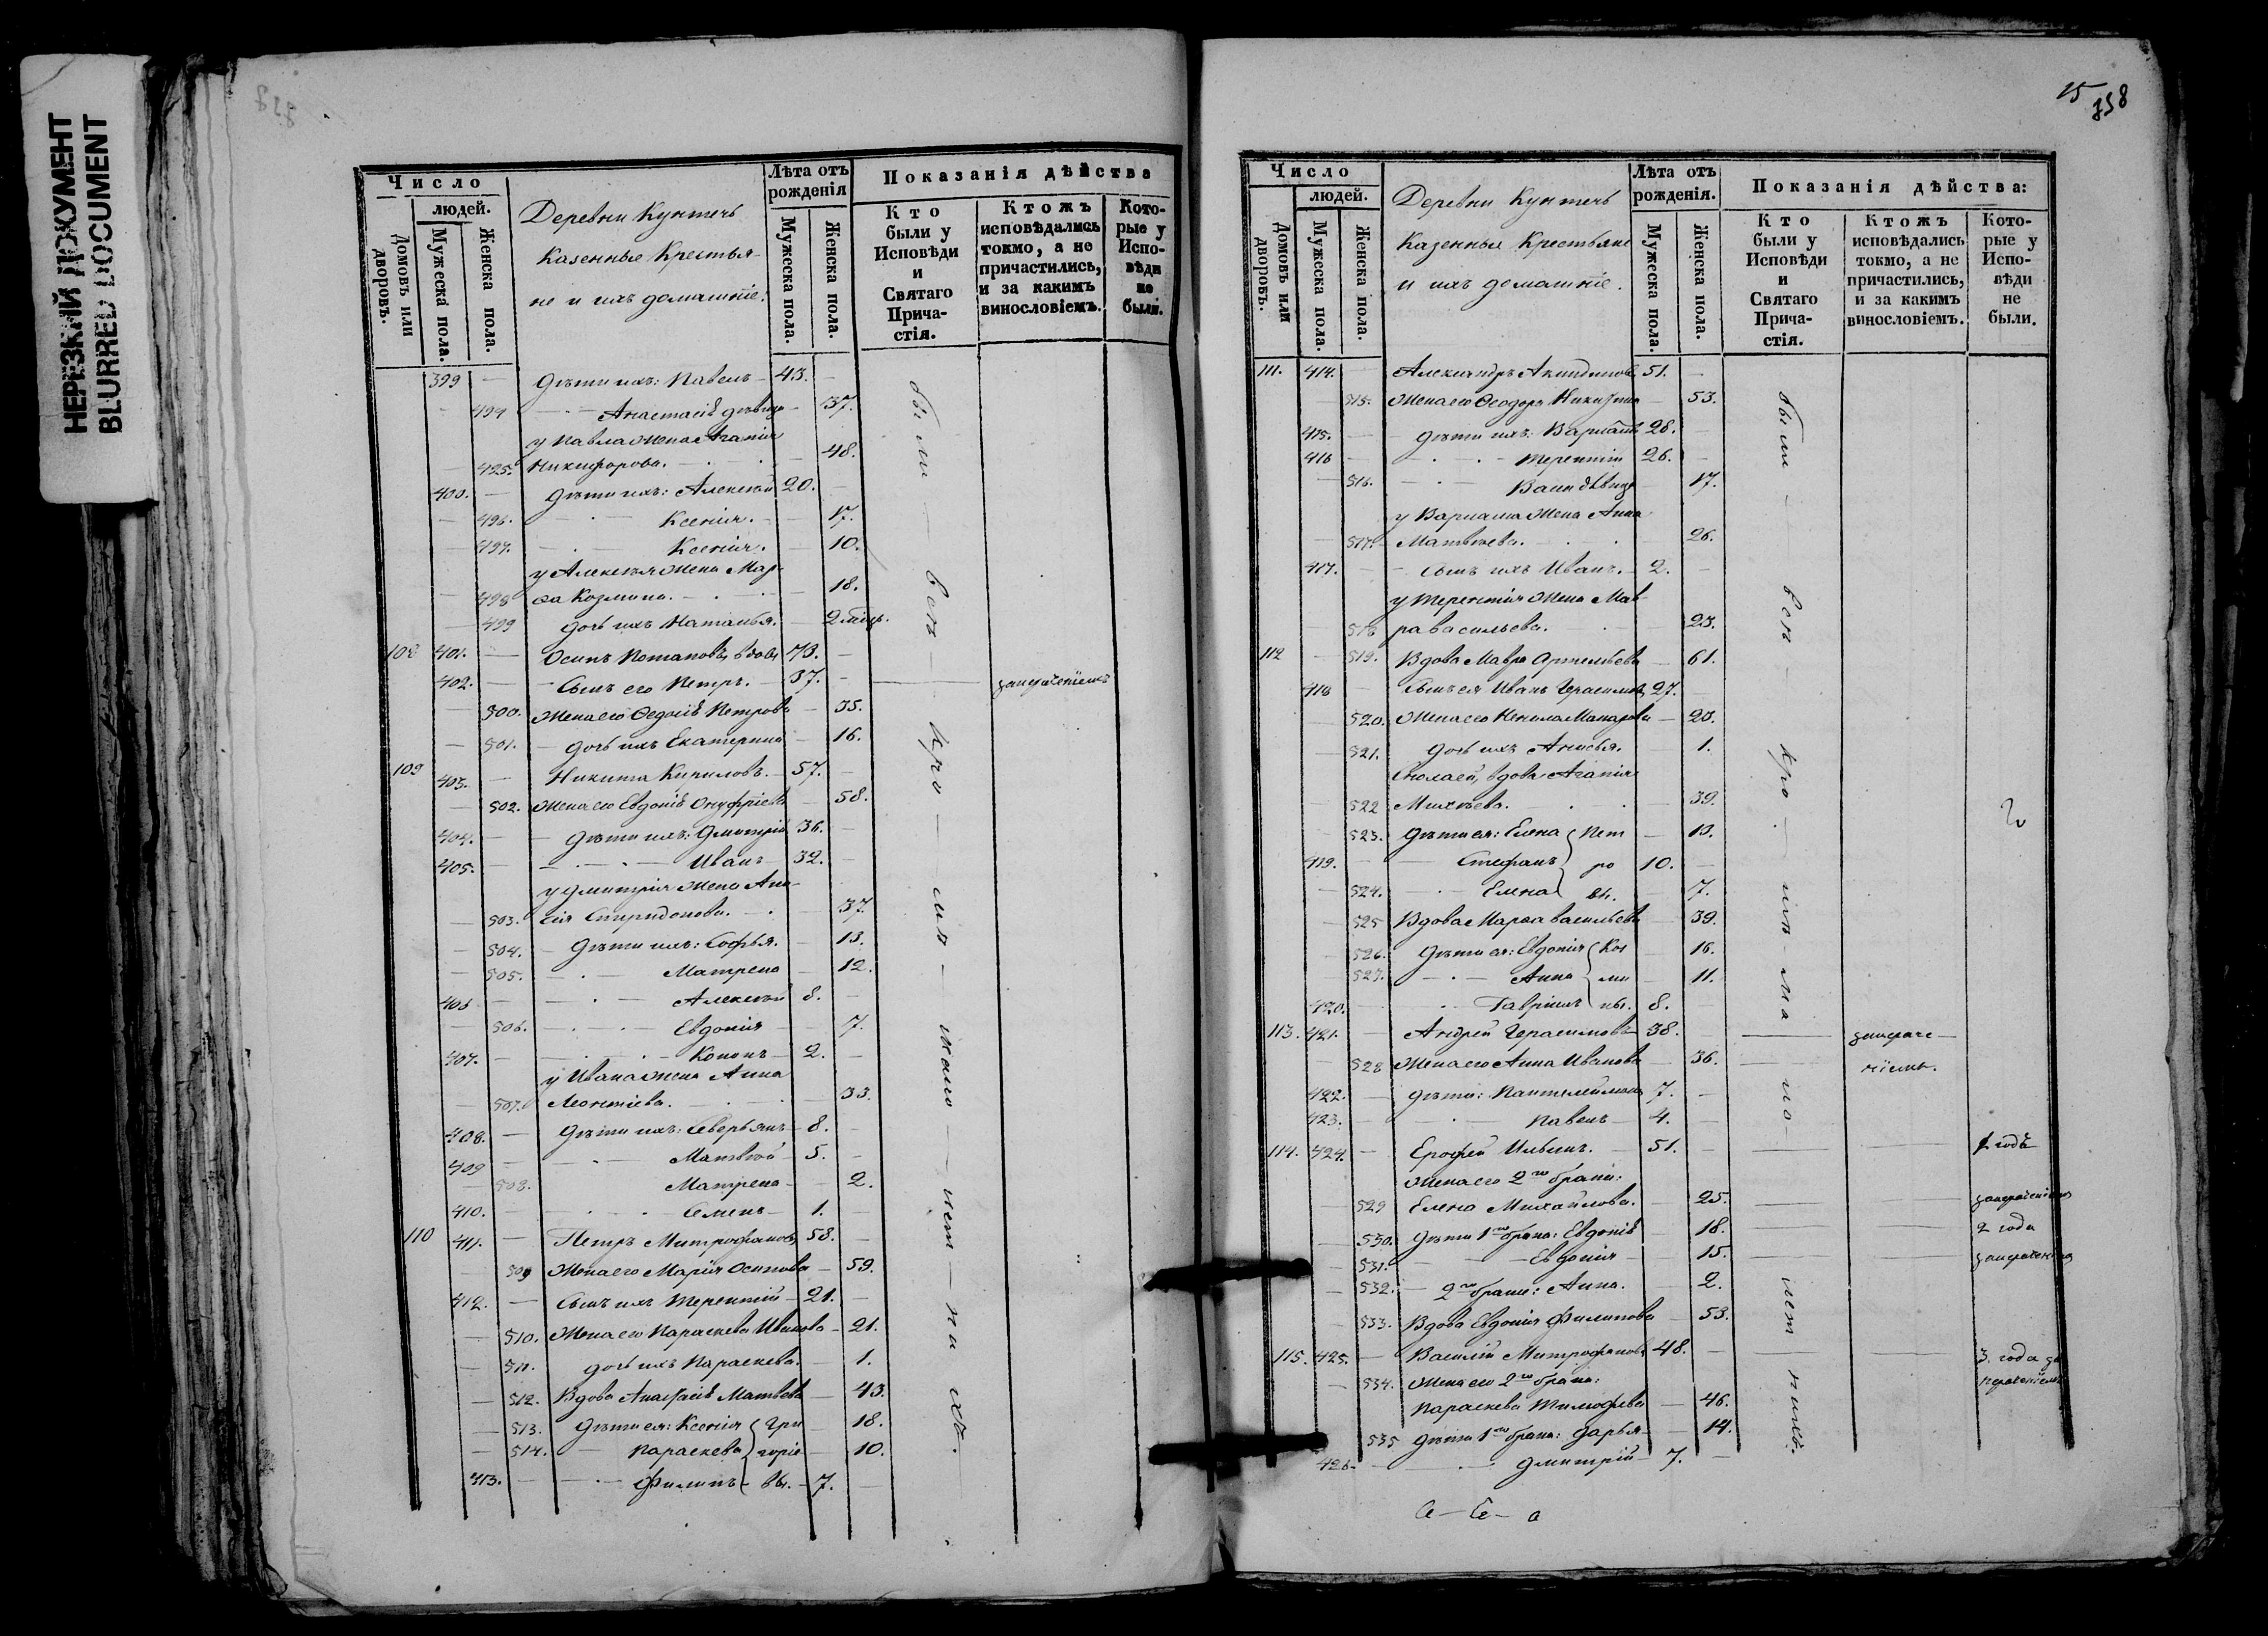 НЕРЕЗКИЙ ДОКУМЕНТ
BLURRED DOCUMENT
Число
людей.
Домовъ или дворовъ.
Мужеска пола.
Женска пола.
Деревни Кунтечь
Казенные Крестья-
не и ихъ домашніе:
Лѣта отъ рожденія
Мужеска пола.
Женска пола.
Показанія дѣйства
Кто были у Исповѣди и Святаго Прича-стія.
Ктожъ исповѣдались токмо, а не причастились, и за какимъ винословіемъ.
Кото-рые у Испо-вѣди не были.
399 — Дѣти ихъ: Павелъ — 43. —
— 494 — Анастасія дѣвица — 37.
у Павла жена Агапія
— 495. Никифорова. — 48.
400. — Дѣти ихъ: Алексѣй 20. —
— 496. — Ксенія. — 17.
— 497. — Ксенія. — 10.
у Алексѣя жена Мар-
— 498 ѳа Козмина. — 18.
— 499 дочь ихъ Наталья. — 2 мѣсц.
108 401. — Осипъ Потаповъ, вдовъ 73. —
402. — Сынъ его Петръ. — 37. — — за нераченіемъ
— 500. Жена его Ѳедосія Петрова — 35.
— 501. — дочь ихъ Екатерина — 16.
109 403. — Никита Кириловъ. — 57. —
— 502. Жена его Евдокія Онуфріева — 58.
404. — Дѣти ихъ: Дмитрій 36. —
405. — Иванъ — 32. —
у Дмитрія жена Ани-
— 503. сія Спиридонова. — 37.
— 504. — Дѣти ихъ: Софья. — 13.
— 505. — Матрена — 12.
406 — Алексѣй 8. —
— 506. — Евдокія — 7.
407. — Кононъ — 2. —
у Ивана жена Анна
— 507. Леонтіева. — 33.
408. — Дѣти ихъ: Северьянъ — 8. —
409 — Матвѣй — 5. —
— 508. Матрена — 2.
410. — Семенъ — 1. —
110 411. — Петръ Митрофановъ 58. —
— 509 Жена его Марія Осипова — 59.
412. — Сынъ ихъ Терентій — 21. —
— 510. Жена его Параскева Иванова — 21.
— 511. дочь ихъ Параскева. — 1.
— 512. Вдова Анастасія Матвѣева — 43.
— 513. Дѣти ея: Ксенія Гри — 18.
— 514. — Параскева горіе — 10.
413. — Филипъ — вы. — 7. —
были — всѣ — кро —
15
358
Число
людей.
Домовъ или дворовъ.
Мужеска пола.
Женска пола.
Деревни Кунтечь
Казенные Крестьяне
и ихъ домашніе.
Лѣта отъ рожденія.
Мужеска пола.
Женска пола.
Показанія дѣйства:
Кто были у Исповѣди и Святаго Прича-стія.
Ктожъ исповѣдались токмо, а не причастились, и за какимъ винословіемъ.
Кото-рые у Испо-вѣди не были.
111. 414. — Александръ Акиндиновъ 51. —
— 515. Жена его Ѳеодора Никитина — 53.
415. — Дѣти ихъ: Варламъ 28. —
416 — Терентій 26. —
— 516. — дѣвица — 17.
у Варлама жена Анна
— 517. Матвѣева. — 26.
417. — Сынъ ихъ Иванъ. — 2. —
у Терентія жена Мав-
518 ра Васильева. — 23.
112 — 519. Вдова Мавра Артемьева — 61.
418 — Сынъ ея Иванъ Герасимовъ 27.
— 520. Жена его Макарова — 20.
— 521. дочь ихъ Анисья. — 1.
вдова Агапія
— 522 Михѣева. — 39.
— 523. Дѣти ея: Елена Пет — 13.
419. — Стефанъ ро 10. —
— 524. — Елена вы. — 7.
— 525 Вдова Марѳа Васильева — 39.
— 526. Дѣти ея: Евдокія Коз — 16.
— 527. — Анна ми — 11.
420. — Гавріилъ ны. 8. —
113. 421. — Андрей Герасимовъ — 38. — — за нераче-
— 528 Жена его Анна Иванова — 36. — ніемъ.
422. — Дѣти: Пантелеймонъ 7. —
423. — Павелъ — 4. —
114. 424. — Ерофей Ильинъ. — 51. — — 1 годъ
Жена его 2го брака:
— 529 Елена Михайлова. — 25. — за нераченіемъ
— 530. Дѣти 1го брака: Евдокія — 18. — 2 года
— 531. — Евдокія — 15. — за нераченіемъ
— 532. — 2го брака: Анна. — 2.
— 533. Вдова Евдокія Филипова — 53.
115. 425. — Василій Митрофановъ 48. — — 3. года за
— 534. Жена его 2го брака: нераченіемъ
Параскева Тимофѣева — 46.
535 Дѣти 1го брака: Дарья — 14.
426. — Дмитрій — 7. —
были — всѣ — кро —